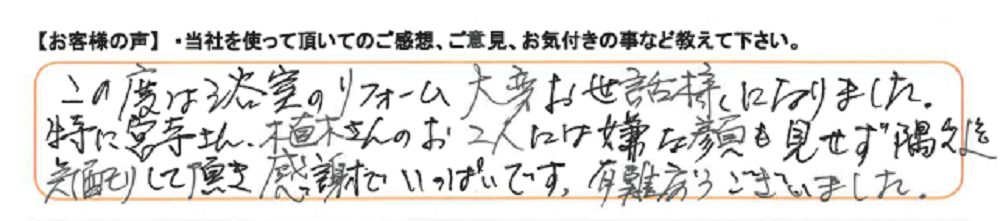 【お客様の声】・当社を使って頂いてのご感想、ご意見、お気付きの事など教えて下さい。
この度は浴室のリフォーム大変お世話様になりました。
特に宮寺さん、植木さんのお2人には嫌な顔も見せず隅々迄
気配りして頂き感謝でいっぱいです。有難うございました。